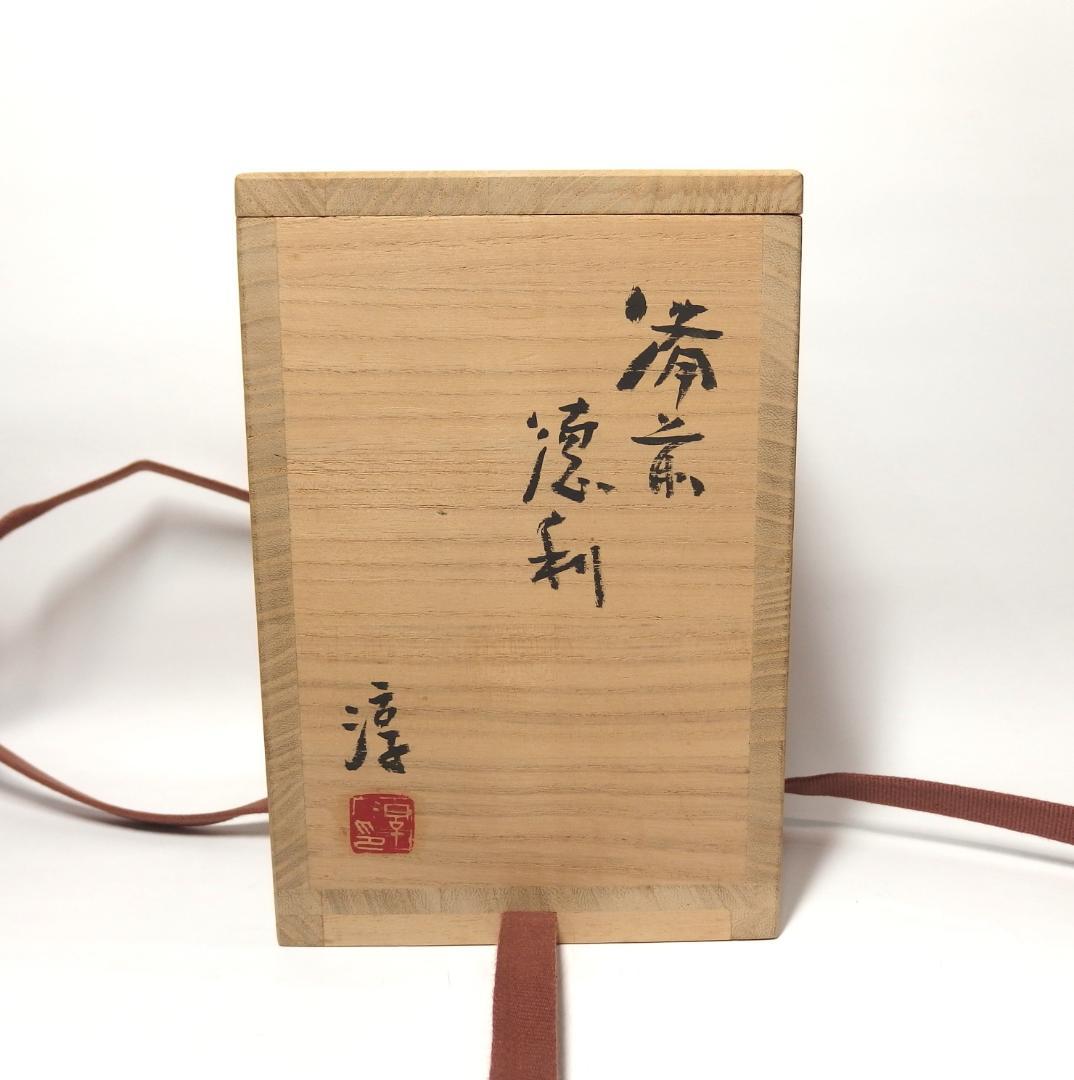 備前
徳利
淳
淳印